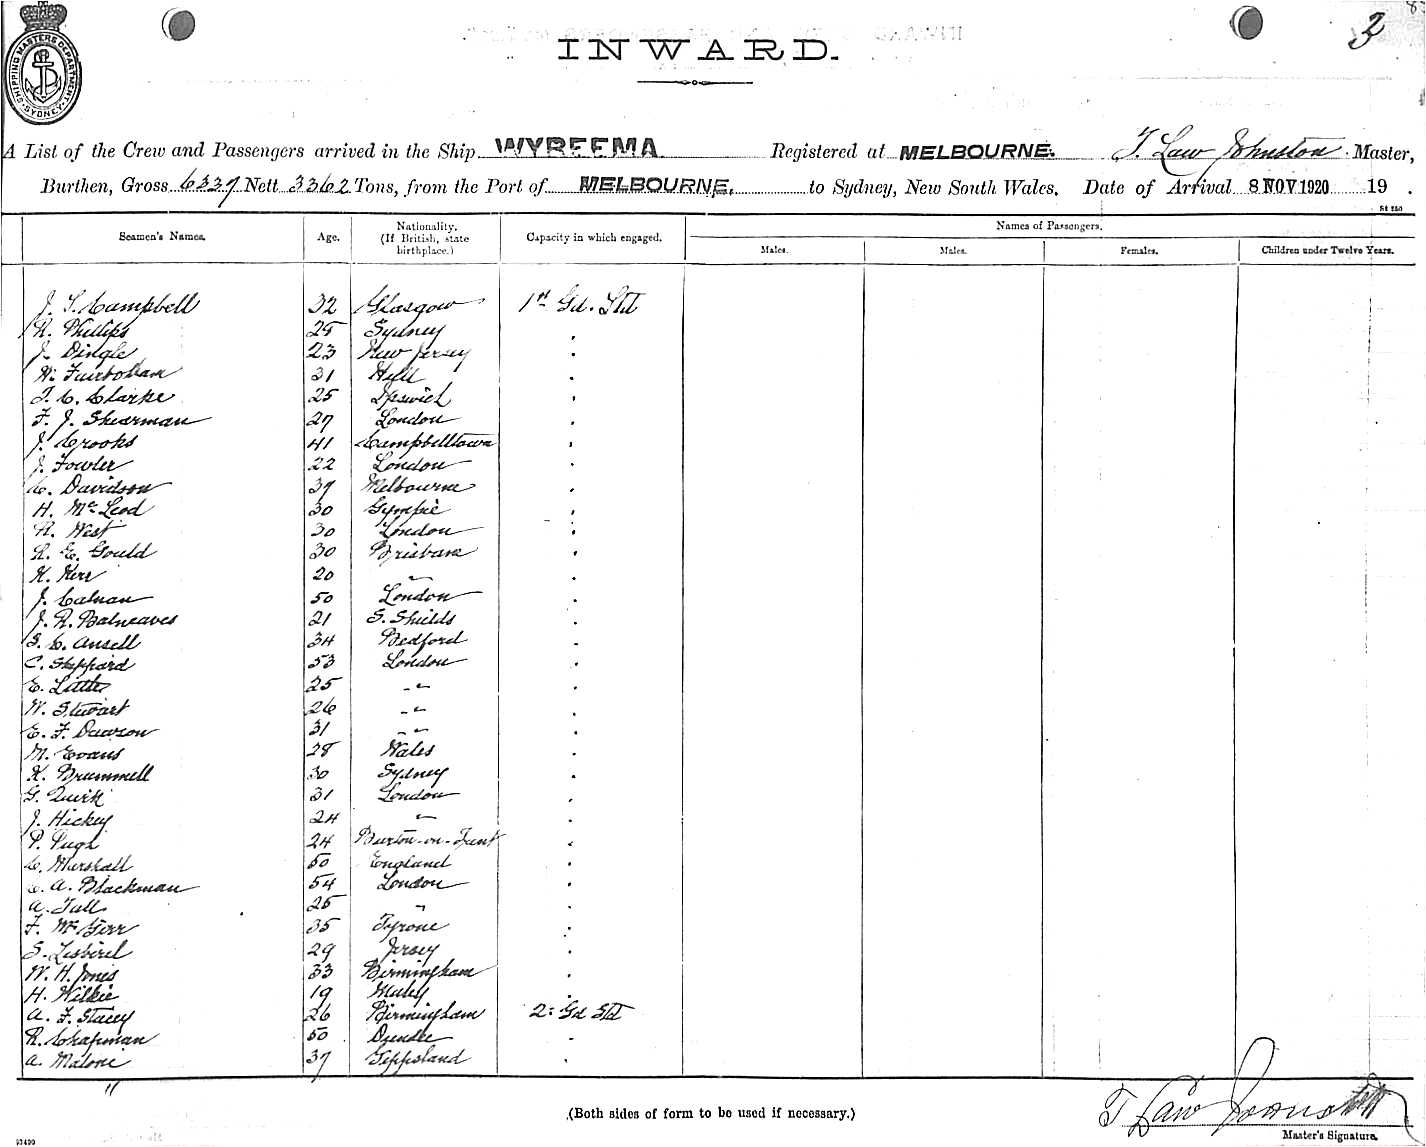 3
SHIPPING MASTERS DEPARTMENT
SYDNEY
INWARD.
A List of the Crew and Passengers arrived in the Ship WYREEMA Registered at MELBOURNE. T. Law Johnston Master,
Burthen, Gross 6337 Nett 3362 Tons, from the Port of MELBOURNE, to Sydney, New South Wales, Date of Arrival 8 NOV 1920 19 .
St 250
Seamen's Names. Age. Nationality. (If British, state birthplace.) Capacity in which engaged. Names of Passengers.
Males. Males. Females. Children under Twelve Years.
J. S. Campbell 32 Glasgow 1st Gd. Std
R. Phillips 25 Sydney "
J. Dingle 23 New Jersey "
W. 31 Hull "
T. C. Clarke 25 Ipswich "
F. J. Shearman 27 London "
J. Crooks 41 Campbelltown "
J. Fowler 22 London "
C. Davidson 39 Melbourne "
H. McLeod 30 Gympie "
R. West 30 London "
R. E. Gould 30 Brisbane "
K. Kerr 20 " "
J. Calnan 50 London "
J. R. Balneaves 21 S. Shields "
S. C. Ansell 34 Bedford "
C. Sheppard 53 London "
E. 25 " "
W. Stewart 26 " "
E. F. Dawson 31 " "
M. Evans 28 Wales "
K. Brummell 30 Sydney "
G. Quirk 31 London "
J. Hickey 24 " "
P. Pugh 24 Burton-on-Trent "
C. Marshall 50 England "
C. A. Blackman 54 London "
A. Tall 25 " "
F. McGirr 35 Tyrone "
S. Lesbirel 29 Jersey "
W. H. Jones 33 Birmingham "
H. Wilkie 19 "
A. F. Stacey 26 Birmingham 2: Gd Std
R. Chapman 50 Dundee "
A. Malone 37 Gippsland "
(Both sides of form to be used if necessary.)
T Law Johnston
Master's Signature.